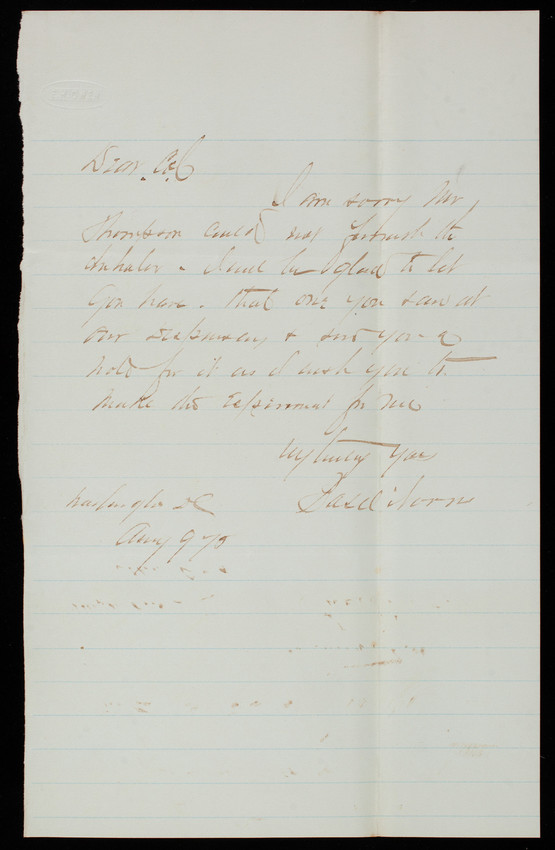 Dear Col
I am sorry Mr
Thompson could not furnish the
inhaler - I will be glad to let
you have that one you saw at
our dispensary & send you a
note for it as I wish you to
make the experiment for me
truly yours
Washington DC
Aug 9 75